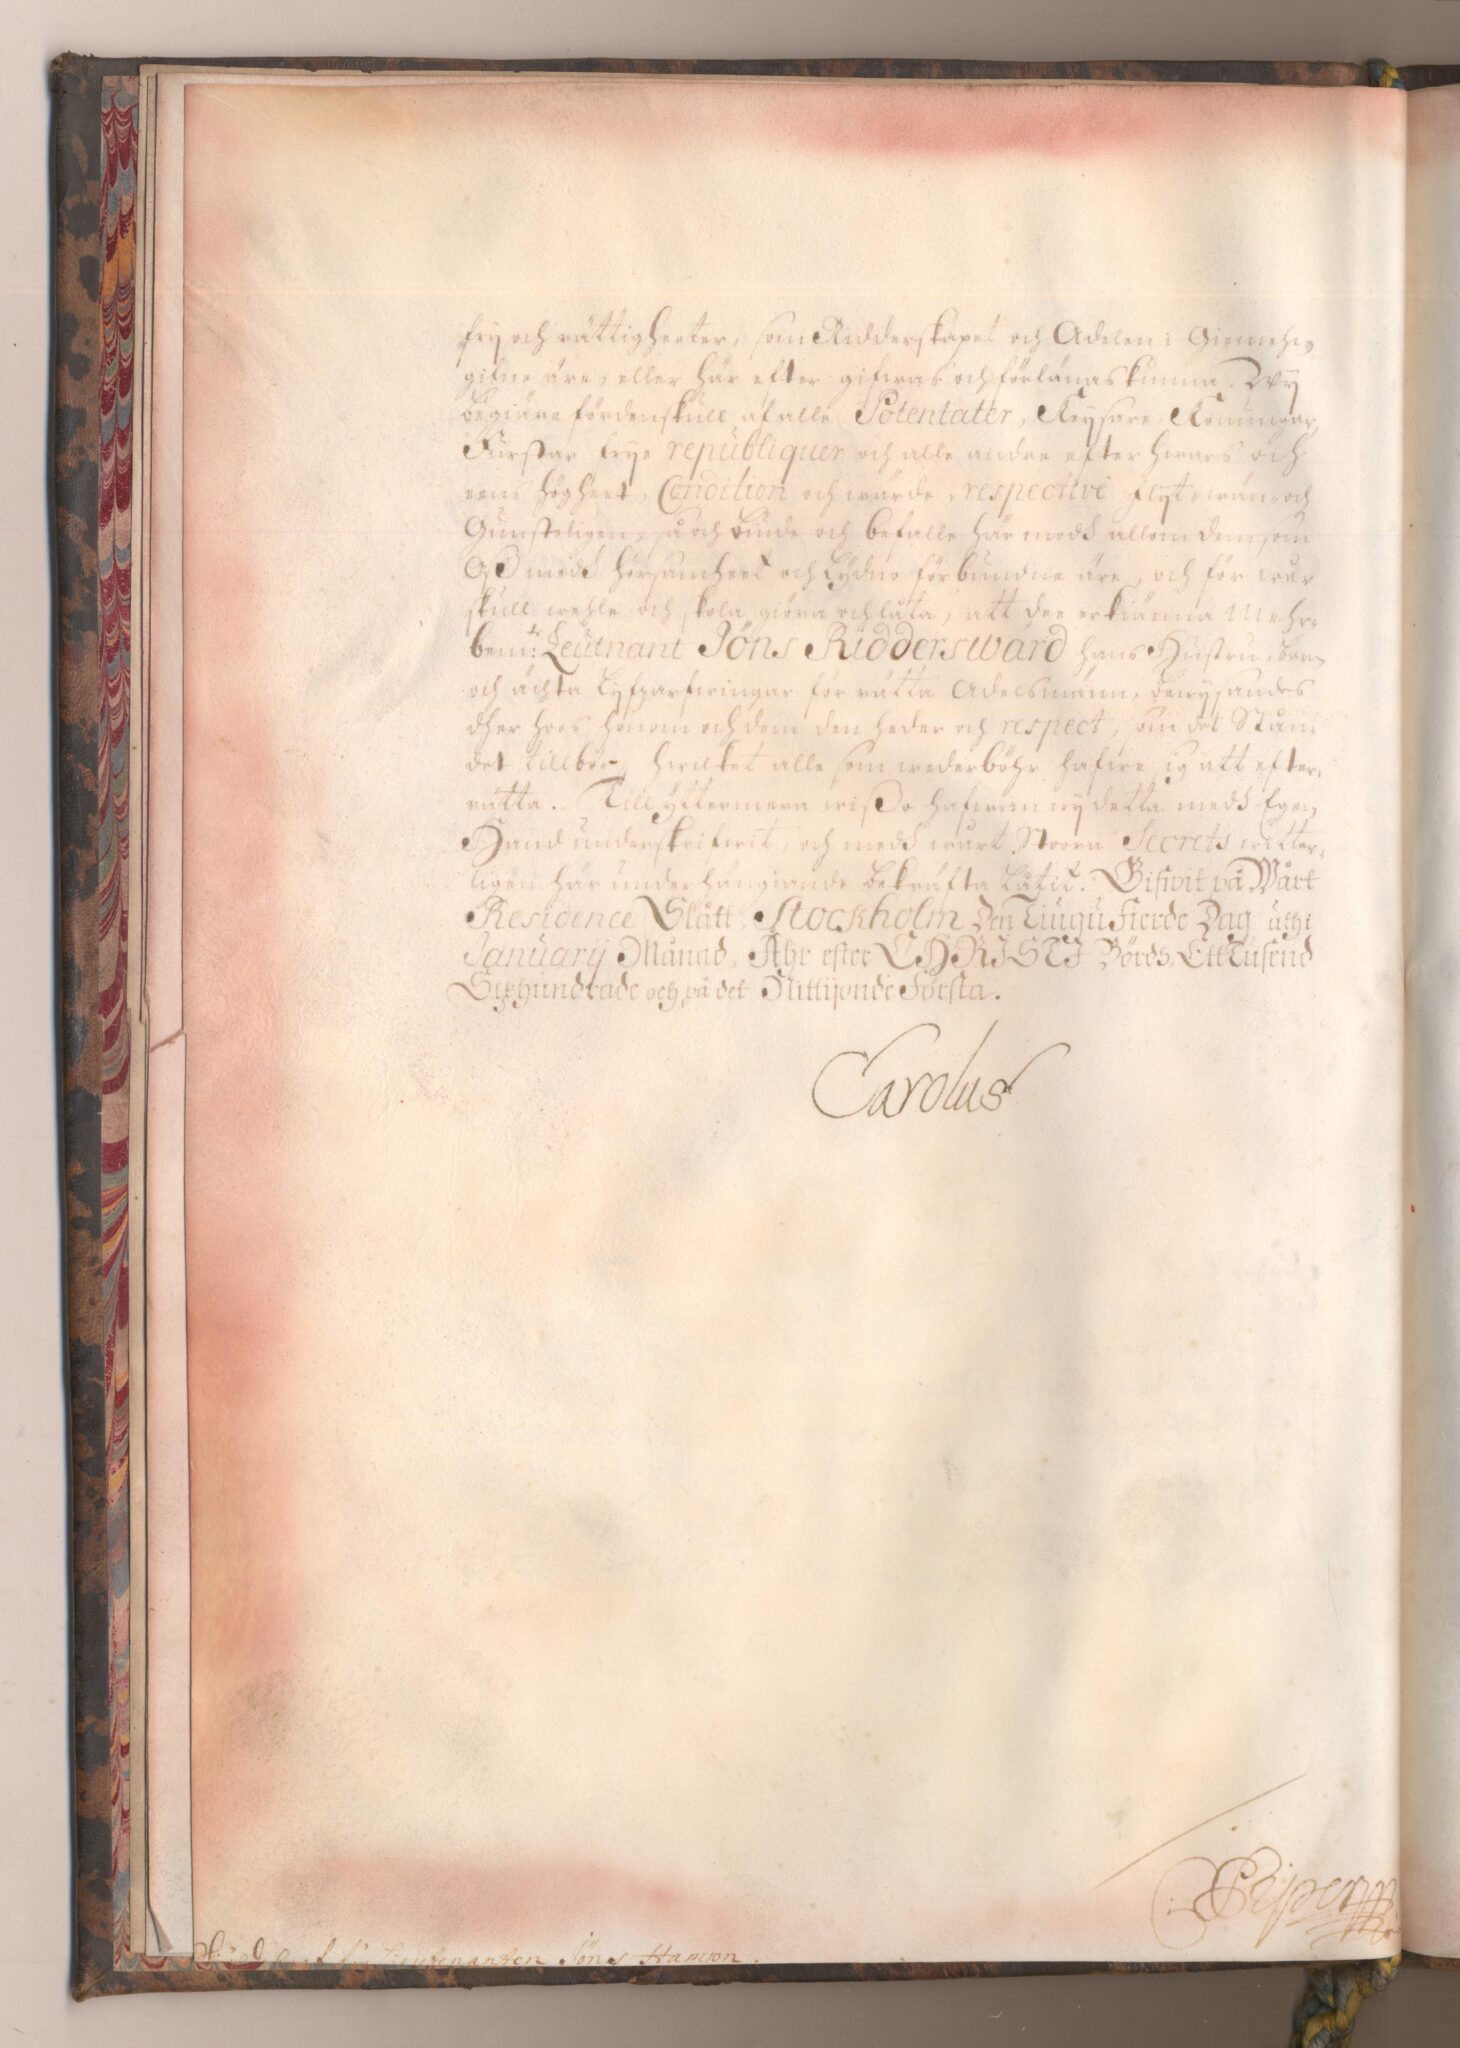 frij och rättigheeter, som Ridderskapet och Adelen i Giemehn
gifne äre, eller här efter gifwas och förlänas kunna. Wij
begiäre fördenskull af alle Potentater, Keysare, Konungar,
Furstar frije republiquer och alle andre efter hwars och
eens högheet, Condition och wärde, respective flijt- wän- och
Gunsteligen, så och biude och befalle här medh allom dem som
Oß medh hörsamheet och lydno förbundne äre, och för wår
skull wehle och skola giöra och låta, att dee erkiänna Mehr-
bem:te Leutnant Jöns Riddersward hans Hustru, barn
och ächta Lijfzarfwingar för rätta Adelsmän, bewijsandes
dher hoos honom och dem den heder och respect, som det Stån-
det tillbör, hwilket alle som wederböhr hafwe sig att efter-
rätta. Till yttermera wißo hafwom wij detta medh Egen
Hand underskrifwit, och medh wårt Stoora Secrets witter-
ligen här under hängiande bekräfta låtit. Gifwit på Wårt
Residence Slått Stockholm Den Tiugu Fierde Dag uthi
Januarij Månad, Ahr efter CHRISTI Börds, Ett Tusend
Sexhundrade och på det Nittijonde Första.
Carolus
C Piper
Lieutenanten Jöns Hanson.